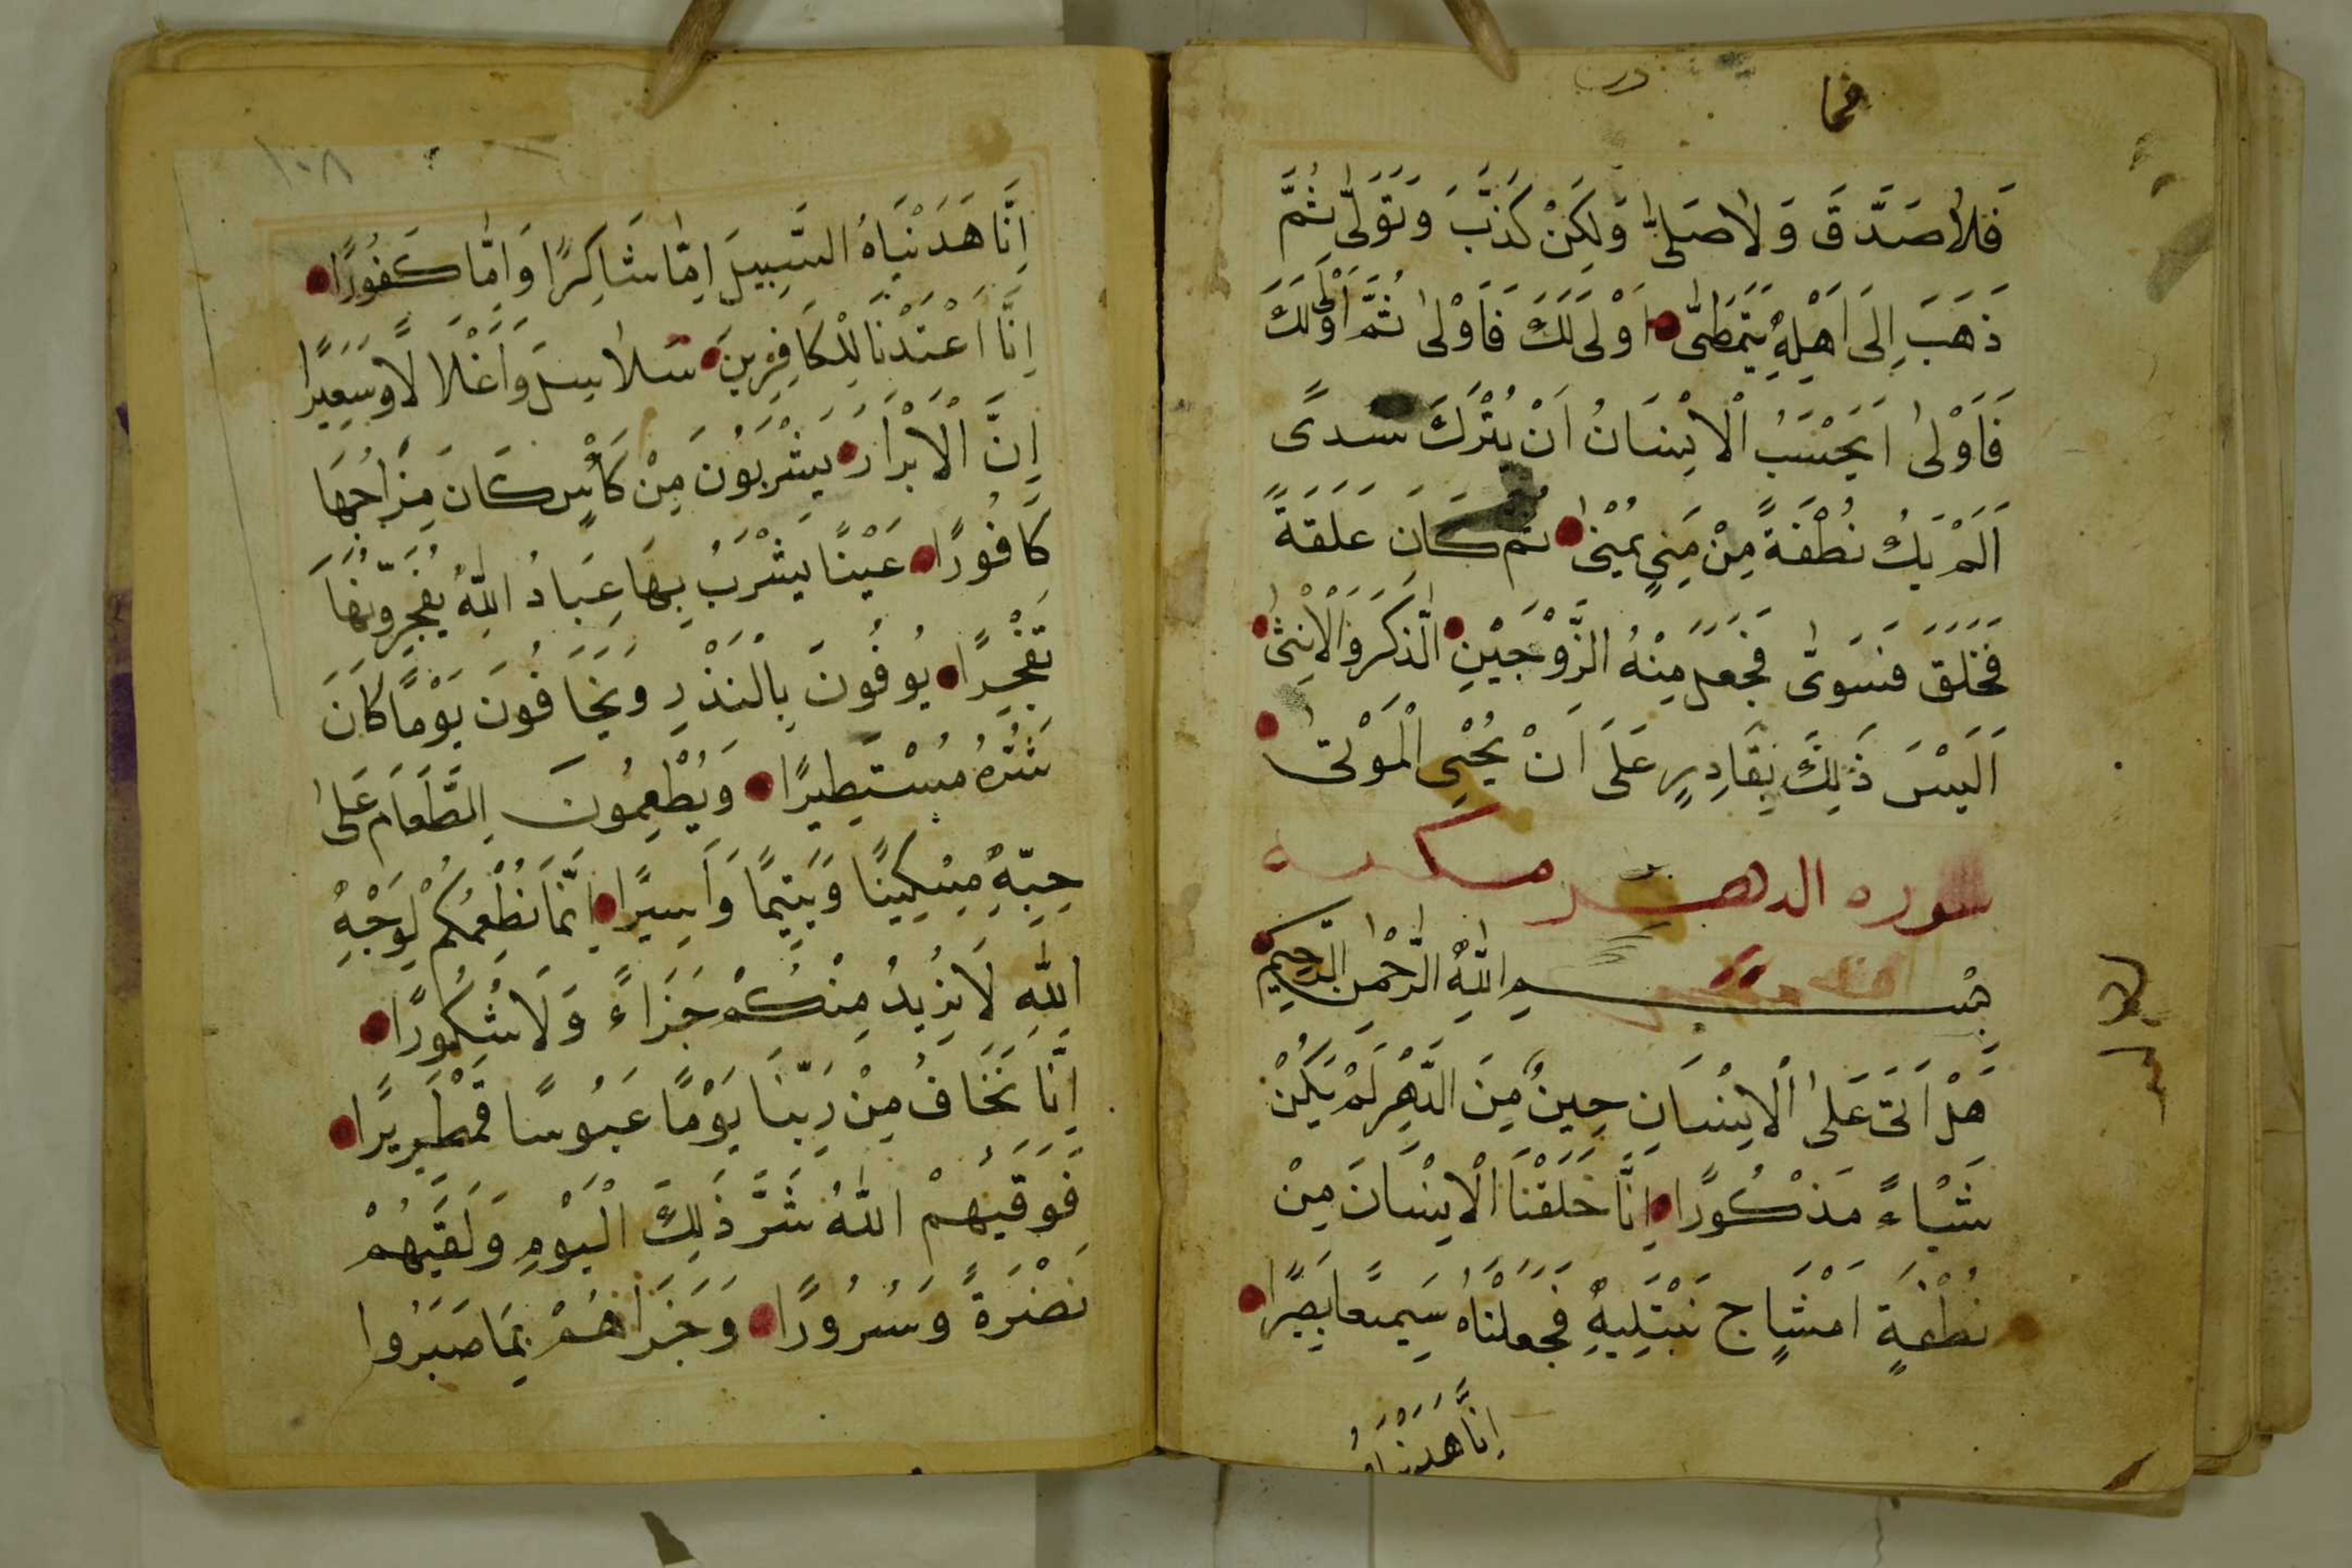 فَلَا صَدَّقَ وَلَا صَلَّىٰ وَلَكِنْ كَذَّبَ وَتَوَلَّىٰ ثُمَّ
ذَهَبَ إِلَى اَهْلِهِ يَتَمَطَّىٰ اَوْلَى لَكَ فَاَوْلىٰ ثُمَّ اَوْلَى لَكَ
فَاَوْلىٰ اَيَحْسَبُ الْاِنْسَانُ اَنْ يُتْرَكَ سُدىً
اَلَمْ يَكُ نُطْفَةً مِنْ مَنِيٍ يُمْنىٰ ثُمَّ كَانَ عَلَقَةً
فَخَلَقَ فَسَوَّىٰ فَجَعَلَ مِنْهُ الزَّوْجَيْنِ الذَّكَرَ وَالْاُنْثىٰ
اَلَيْسَ ذَلِكَ بِقَادِرٍ عَلَى اَنْ يُحْيِيَ الْمَوْتىٰ
سوره الدهر مكيه
بِسْمِ اللّٰهِ الرَّحْمٰنِ الرَّحِيمِ
هَلْ اَتَى عَلَىٰ الْاِنْسَانِ حِينٌ مِنَ الدَّهْرِ لَمْ يَكُنْ
شَيْاءً مَذْكُورًا اِنَّا خَلَقْنَا الْاِنْسَانَ مِنْ
نُطْفَةٍ اَمْشَاجٍ نَبْتَلِيهِ فَجَعَلْنَاهُ سَمِيعًا بَصِيرًا
اِنَّا هَدَيْنَاهُ
١٠٨
اِنَّا هَدَيْنَاهُ السَّبِيلَ اِمَّا شَاكِرًا وَاِمَّا كَفُورًا
اِنَّا اَعْتَدْنَا لِلْكَافِرِينَ سَلَاسِلَ وَاَغْلَالًا وَسَعِيرًا
اِنَّ الْاَبْرَارَ يَشْرَبُونَ مِنْ كَأْسٍ كَانَ مِزَاجُهَا
كَافُورًا عَيْنًا يَشْرَبُ بِهَا عِبَادُ اللّٰهِ يُفَجِّرُونَهَا
تَفْجِيرًا يُوفُونَ بِالنَّذْرِ وَيَخَافُونَ يَوْمًا كَانَ
شَرُّهُ مُسْتَطِيرًا وَيُطْعِمُونَ الطَّعَامَ عَلىٰ
حُبِّهِ مِسْكِينًا وَيَتِيمًا وَاَسِيرًا اِنَّمَا نُطْعِمُكُمْ لِوَجْهِ
اللّٰهِ لَا نُرِيدُ مِنْكُمْ جَزَاءً وَلَا شُكُورًا
اِنَّا نَخَافُ مِنْ رَبِّنَا يَوْمًا عَبُوسًا قَمْطَرِيرًا
فَوَقٰيهُمْ اللّٰهُ شَرَّ ذَلِكَ الْيَوْمِ وَلَقَّيهُمْ
نَضْرَةً وَسُرُورًا وَجَزَاهُمْ بِمَا صَبَرُوا